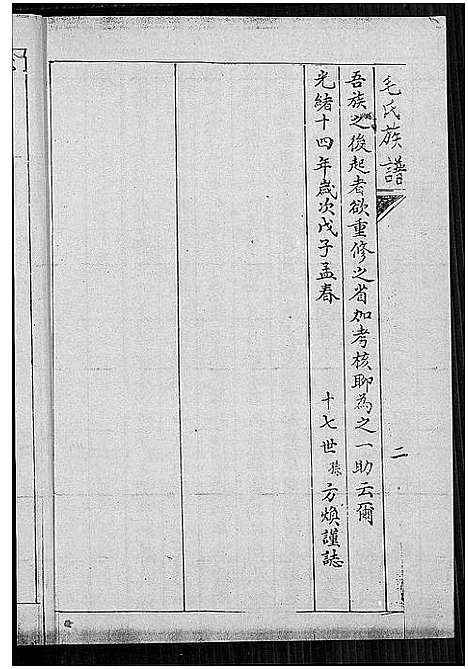 毛氏族譜
二
吾族之後起者欲重修之省加考核聊為之一助云爾
光緒十四年歲次戊子孟春　十七世孫方煥謹誌